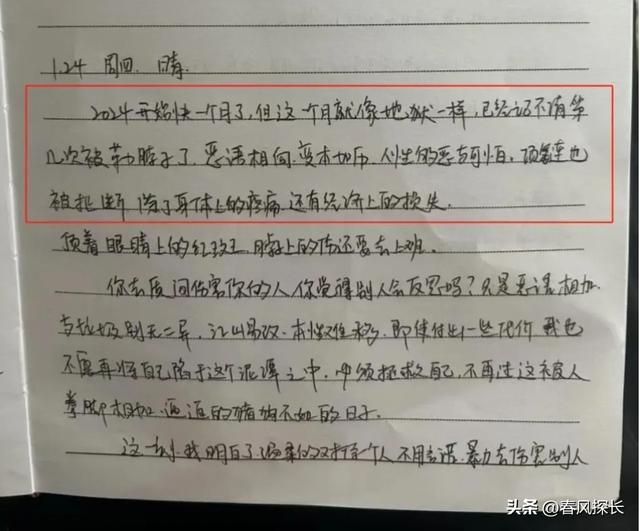 1.24 周四 晴
2024开始快一个月了,但这个月就像地狱一样,已经记不清第
几次被勒脖子了,恶语相向,变本加厉,人性的恶与可怕,项链也
被扯断,除了身体上的疼痛,还有经济上的损失.
顶着眼睛上的红斑,脖子上的伤还要去上班.
你去质问伤害你的人,你觉得别人会反思吗?只是恶语相加
与垃圾别无二异,江山易改,本性难移,即使付出一些代价,我也
不要再将自己陷于这个泥潭之中,必须拯救自己,不再过这被人
拳脚相加,逼迫的猪狗不如的日子.
这一刻我明白了,温柔的对待个人,不用言语、暴力去伤害别人
头条 @春风探长